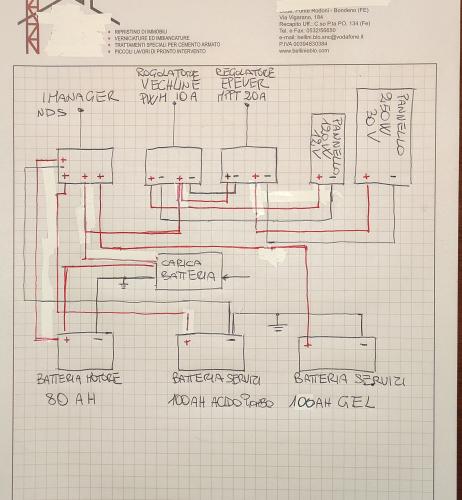 RIPRISTINO DI IMMOBILI
VERNICIATURE ED IMBIANCATURE
TRATTAMENTI SPECIALI PER CEMENTO ARMATO
PICCOLI LAVORI DI PRONTO INTERVENTO
Ponte Rodoni - Bondeno (FE)
Via Vigarano, 184
Recapito Uff.: C.so P.ta PO, 134 (Fe)
Tel. e Fax: 0532/56650
P.IVA 00394630384
IMANAGER
NDS
REGOLATORE
VECHLINE
PWM 10A
REGOLATORE
EPEVER
MPT 20A
PANNELLO
120W
12V
PANNELLO
250W
30V
+
+ + +
+ - + -
+ - + -
+ -
+ -
CARICA
BATTERIA
+ -
+ -
+ -
BATTERIA MOTORE
80 AH
BATTERIA SERVIZI
100AH ACIDO
BATTERIA SERVIZI
100AH GEL